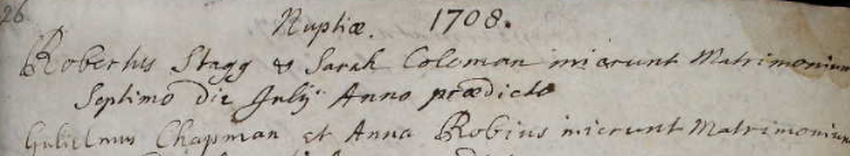 26
Nuptiæ. 1708.
Robertus Stagg & Sarah Coleman inierunt Matrimonium
Septimo die Julij Anno prædicto
Gulielmus Chapman et Anna Robins inierunt Matrimonium